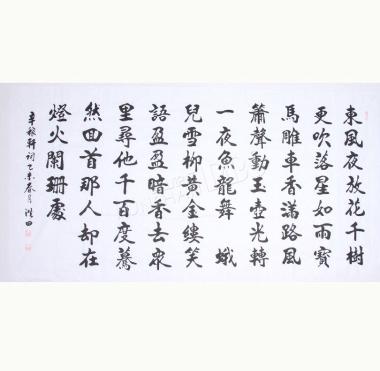 東風夜放花千樹
更吹落星如雨寶
馬雕車香滿路風
簫聲動玉壺光轉
一夜魚龍舞 蛾
兒雪柳黃金縷笑
語盈盈暗香去衆
里尋他千百度驀
然回首那人却在
燈火闌珊處
辛稼軒詞乙未春月